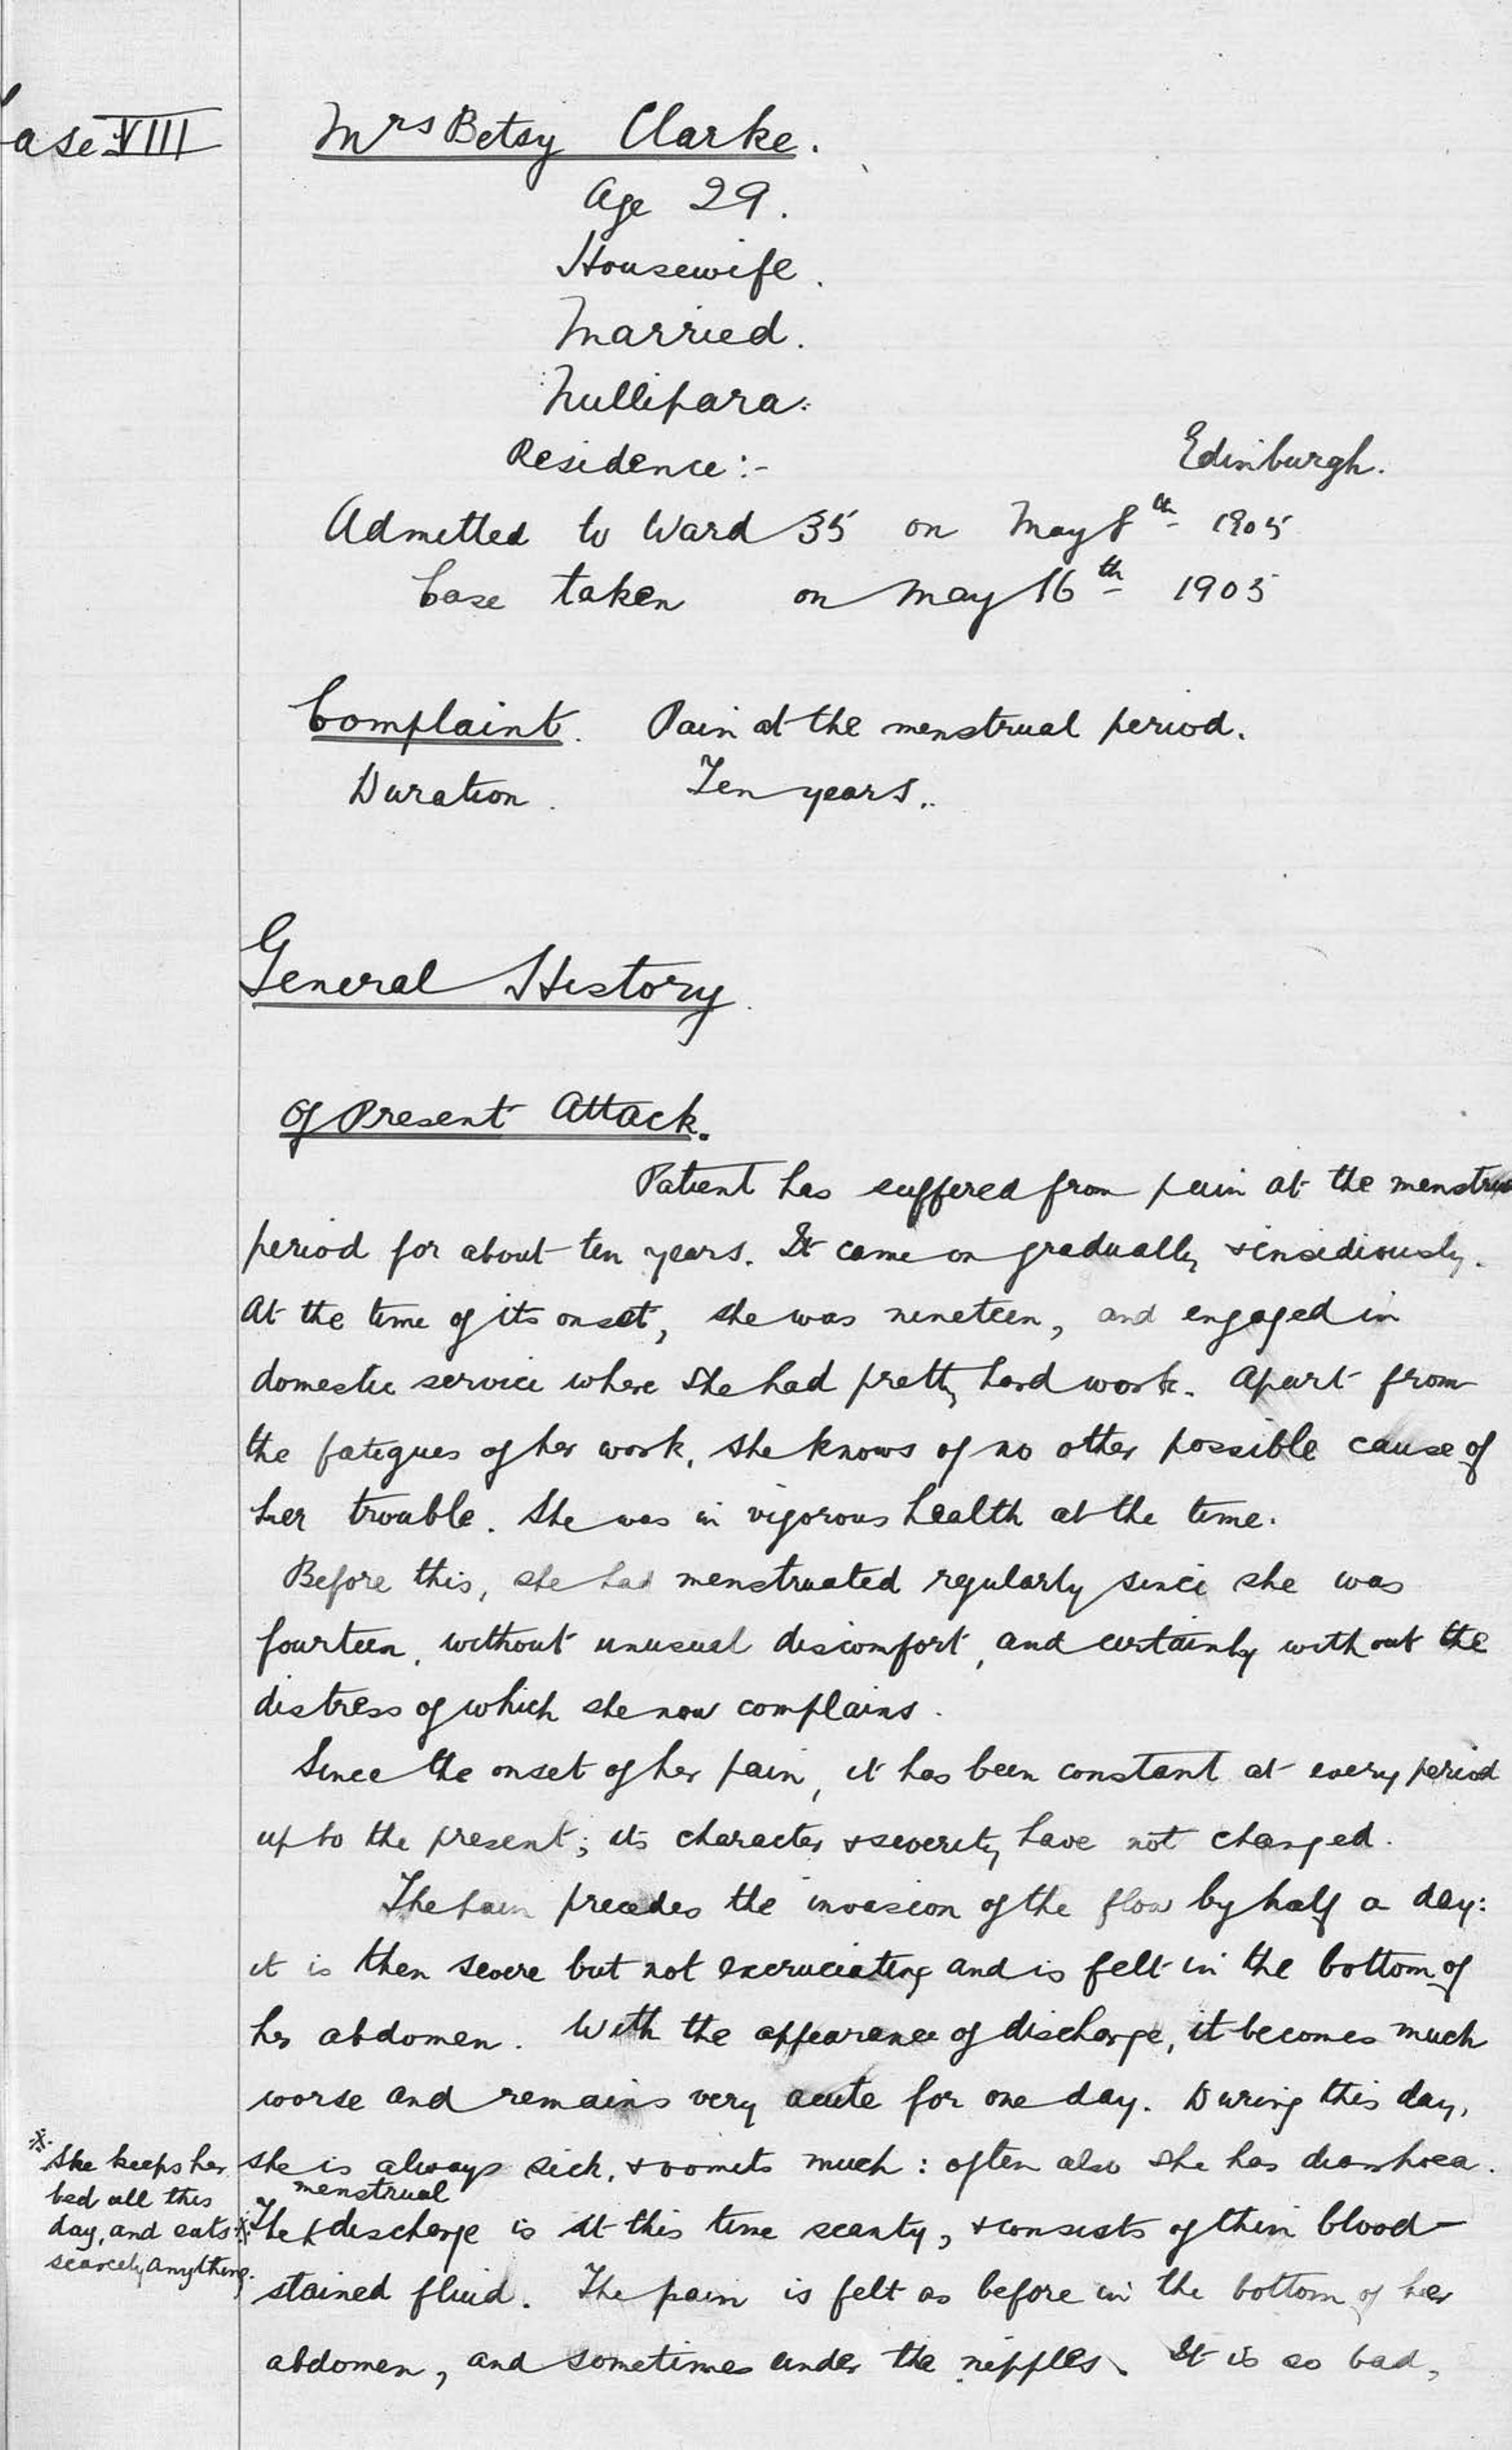 ase VIII
Mrs Betsy Clarke.
Age 29.
Housewife.
Married.
Nullipara.
Residence:- Edinburgh.
Admitted to Ward 35 on May 8th 1905
Case taken on May 16th 1905
Complaint. Pain at the menstrual period.
Duration. Ten years.
General History.
Of Present Attack.
Patient has suffered from pain at the menstru
period for about ten years. It came on gradually & insidiously.
At the time of its onset, she was nineteen, and engaged in
domestic service where she had pretty hard work. Apart from
the fatigues of her work, she knows of no other possible cause of
her trouble. She was in vigorous health at the time.
Before this, she had menstruated regularly since she was
fourteen, without unusual discomfort, and certainly without the
distress of which she now complains.
Since the onset of her pain, it has been constant at every period
up to the present; its character & severity have not changed.
The pain precedes the invasion of the flow by half a day:
it is then severe but not excruciating and is felt in the bottom of
her abdomen. With the appearance of discharge, it becomes much
worse and remains very acute for one day. During this day,
she is always sick, & vomits much: often also she has diarrhoea.
※ She keeps her
bed all this
day, and eats
scarcely anything.
menstrual
※ The discharge is at this time scanty, & consists of thin blood-
stained fluid. The pain is felt as before in the bottom of her
abdomen, and sometimes under the nipples. It is so bad,